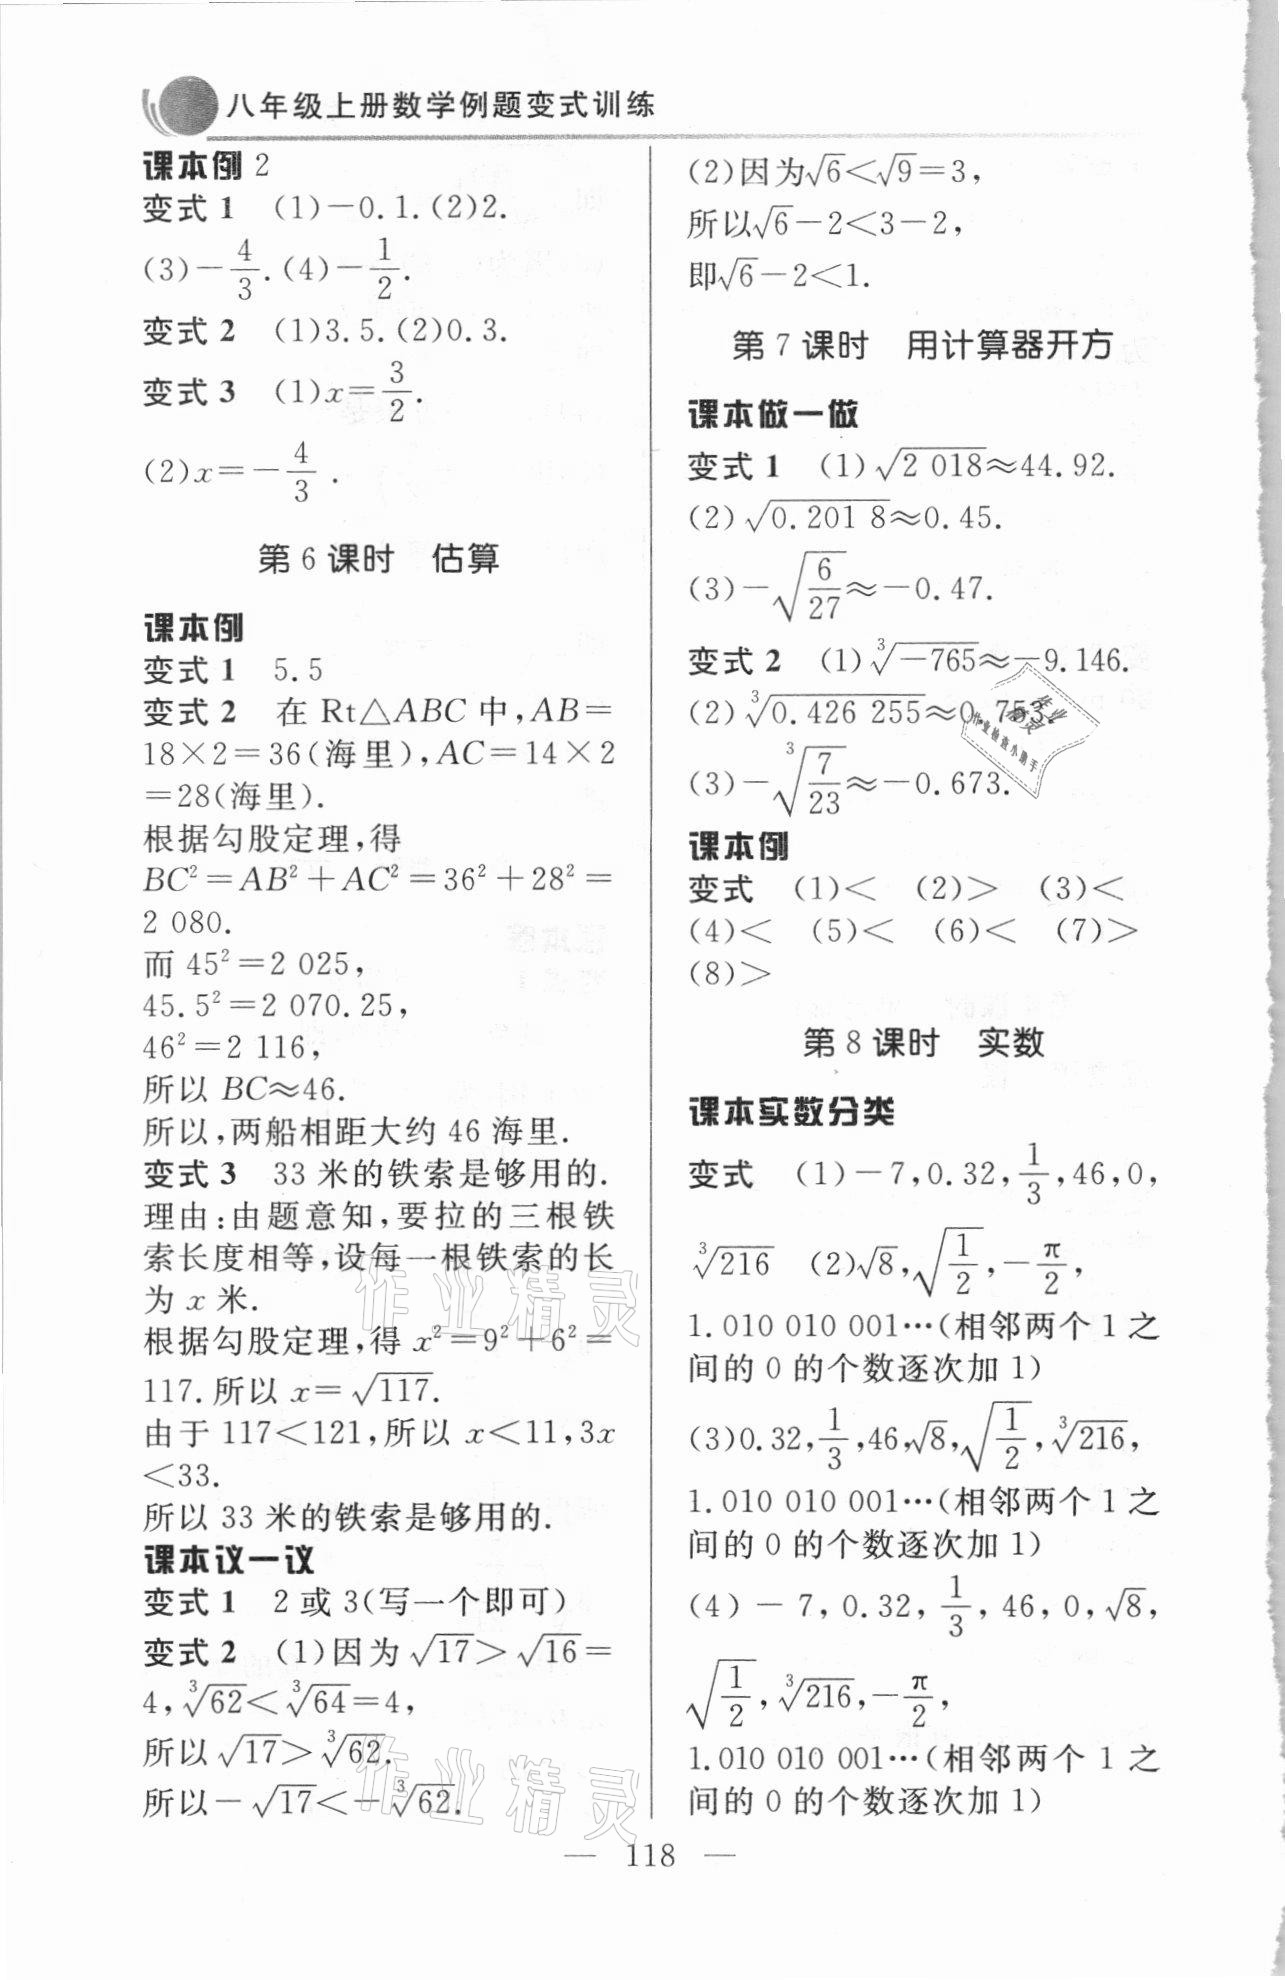 八年级上册数学例题变式训练
课本例 2
变式 1 (1)－0.1.(2)2.
(3)－4/3.(4)－1/2.
变式 2 (1)3.5.(2)0.3.
变式 3 (1)x＝3/2.
(2)x＝－4/3.
第 6 课时 估算
课本例
变式 1 5.5
变式 2 在 Rt△ABC 中,AB＝
18×2＝36(海里),AC＝14×2
＝28(海里).
根据勾股定理,得
BC²＝AB²＋AC²＝36²＋28²＝
2 080.
而 45²＝2 025,
45.5²＝2 070.25,
46²＝2 116,
所以 BC≈46.
所以,两船相距大约 46 海里.
变式 3 33 米的铁索是够用的.
理由:由题意知,要拉的三根铁
索长度相等,设每一根铁索的长
为 x 米.
根据勾股定理,得 x²＝9²＋6²＝
117.所以 x＝√117.
由于 117＜121,所以 x＜11,3x
＜33.
所以 33 米的铁索是够用的.
课本议一议
变式 1 2 或 3(写一个即可)
变式 2 (1)因为 √17＞√16＝
4,∛62＜∛64＝4,
所以 √17＞∛62.
所以－√17＜－∛62.
(2)因为√6＜√9＝3,
所以√6－2＜3－2,
即√6－2＜1.
第 7 课时 用计算器开方
课本做一做
变式 1 (1)√2 018≈44.92.
(2)√0.201 8≈0.45.
(3)－√(6/27)≈－0.47.
变式 2 (1)∛－765≈－9.146.
(2)∛0.426 255≈0.753.
(3)－∛(7/23)≈－0.673.
课本例
变式 (1)＜ (2)＞ (3)＜
(4)＜ (5)＜ (6)＜ (7)＞
(8)＞
第 8 课时 实数
课本实数分类
变式 (1)－7,0.32,1/3,46,0,
∛216 (2)√8,√(1/2),－π/2,
1.010 010 001…(相邻两个 1 之
间的 0 的个数逐次加 1)
(3)0.32,1/3,46,√8,√(1/2),∛216,
1.010 010 001…(相邻两个 1 之
间的 0 的个数逐次加 1)
(4)－7,0.32,1/3,46,0,√8,
√(1/2),∛216,－π/2,
1.010 010 001…(相邻两个 1 之
间的 0 的个数逐次加 1)
作业精灵
作业检查小助手
作业精灵
作业精灵
— 118 —